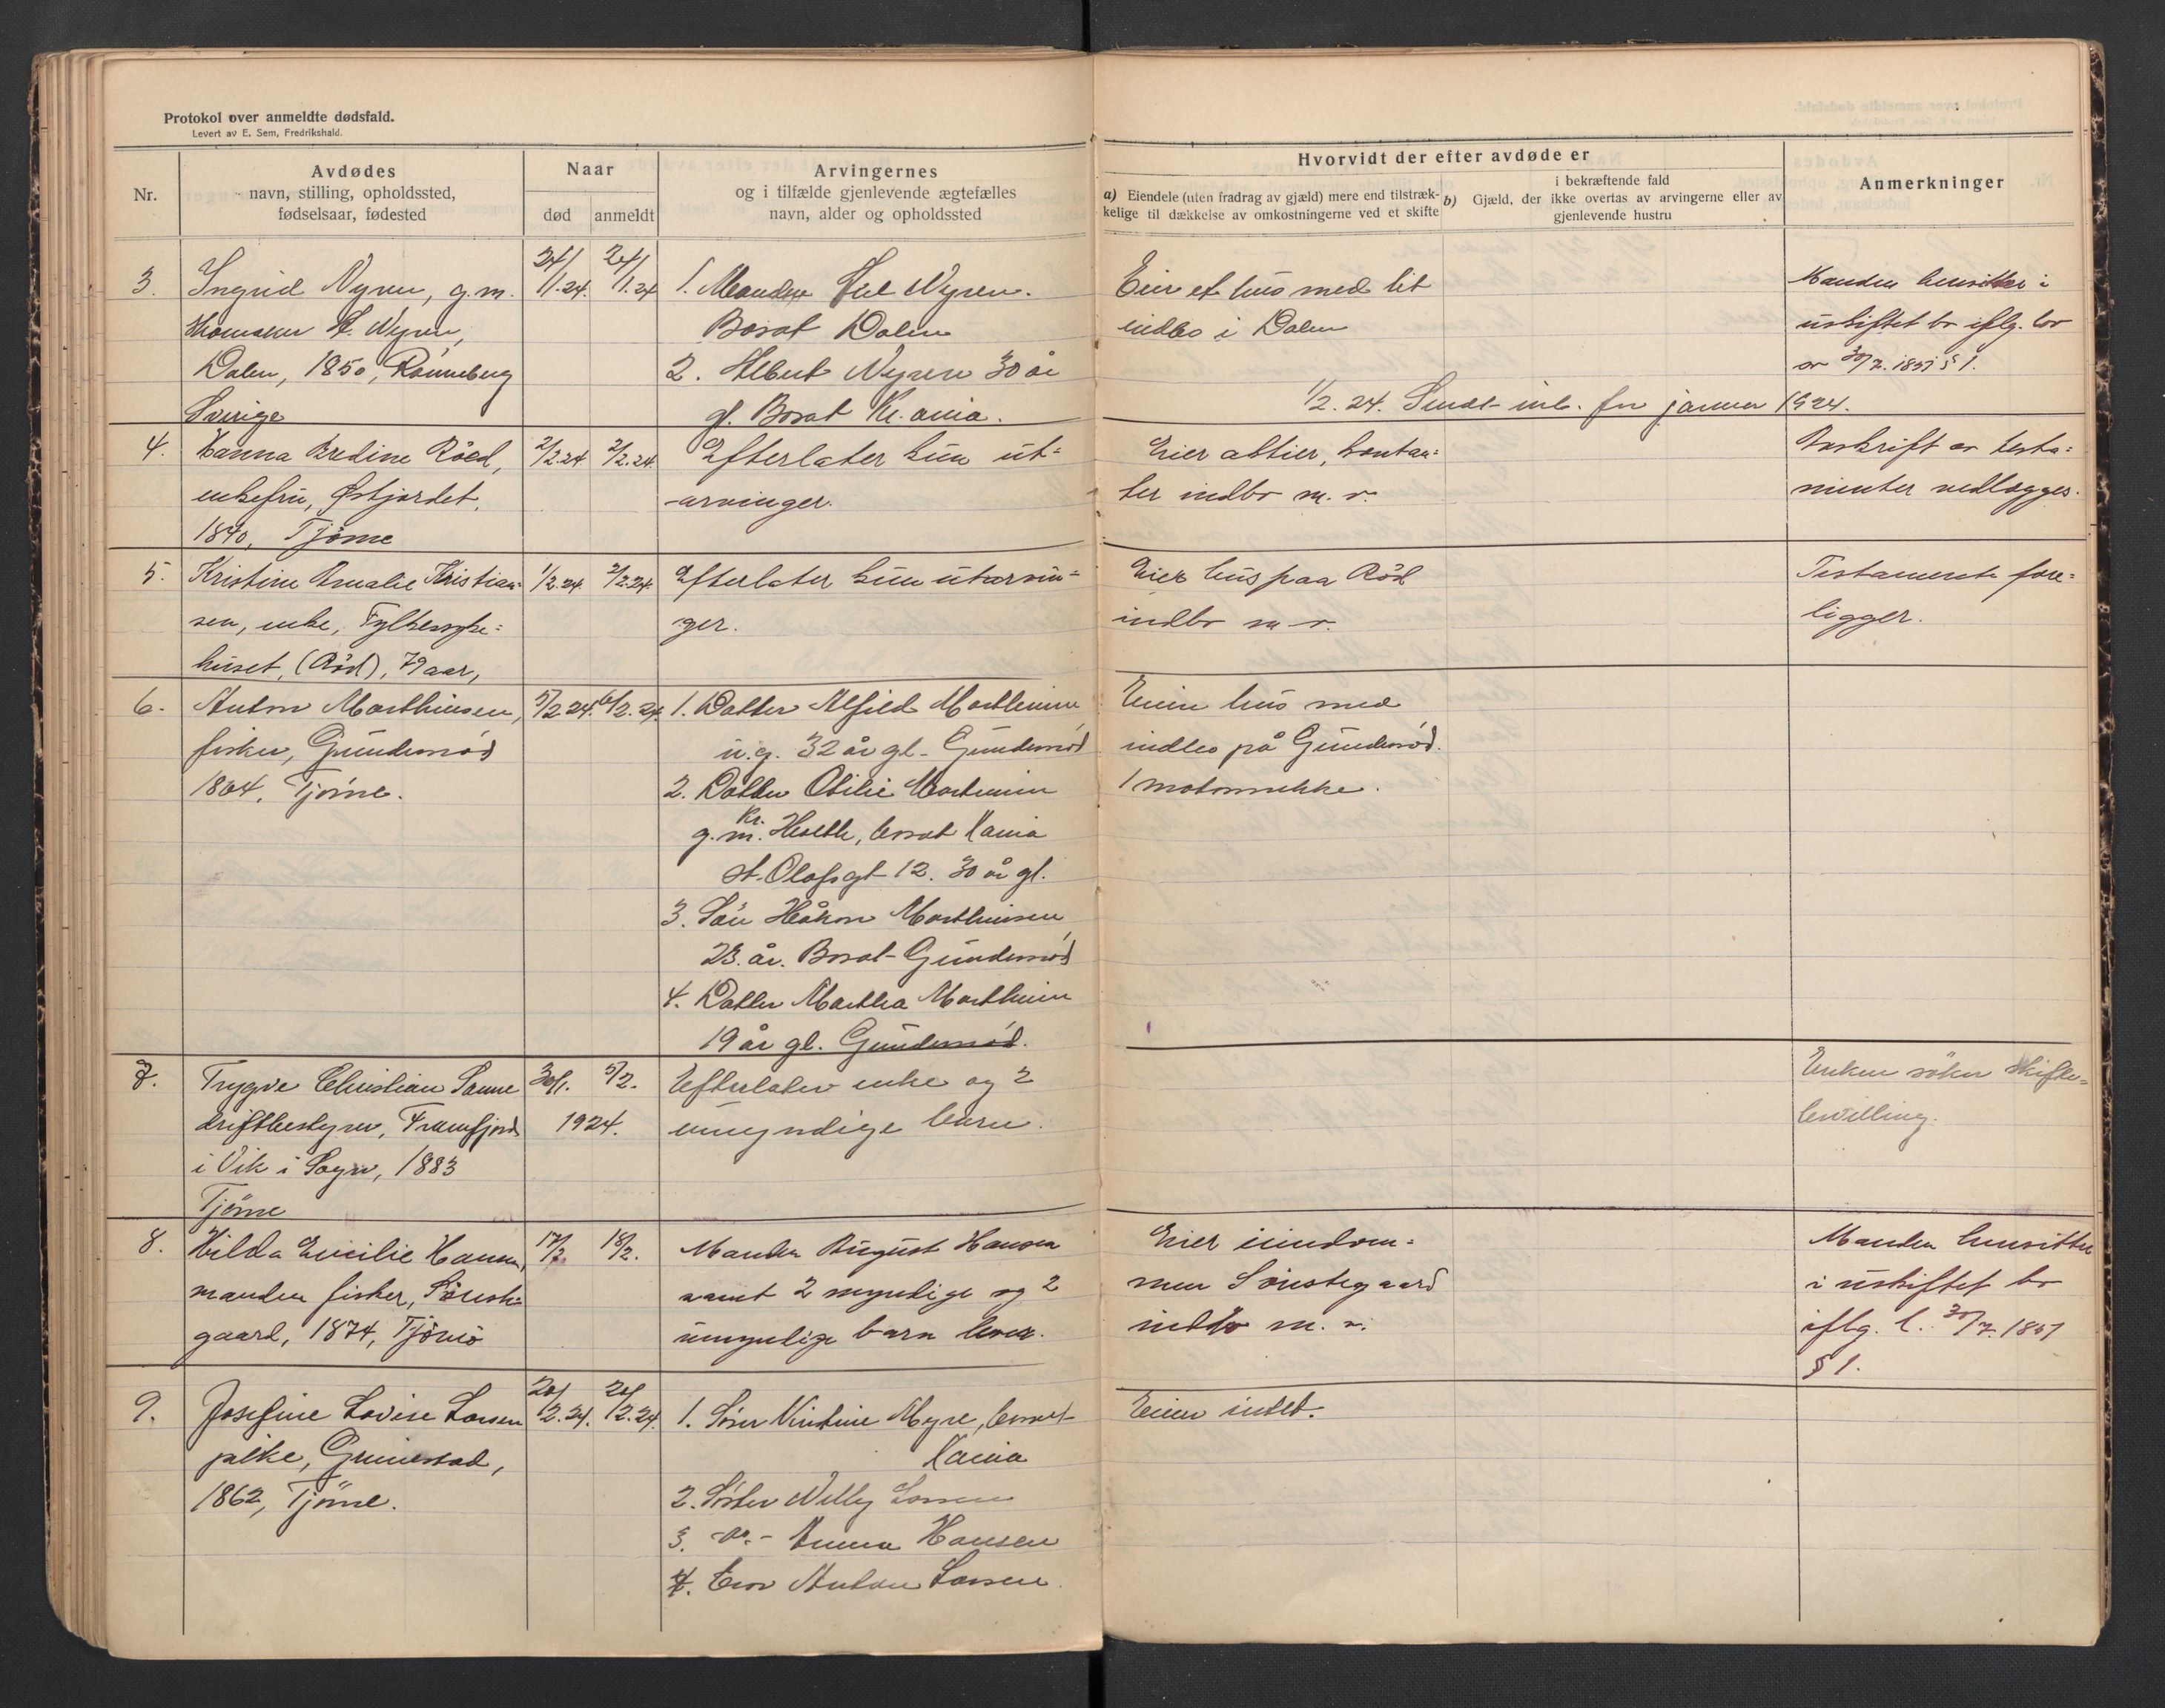 Protokol over anmeldte dødsfald.
Levert av E. Sem, Fredrikshald.
Nr.
Avdødes
navn, stilling, opholdssted,
fødselsaar, fødested
Naar
død
anmeldt
Arvingernes
og i tilfælde gjenlevende ægtefælles
navn, alder og opholdssted
Hvorvidt der efter avdøde er
a) Eiendele (uten fradrag av gjæld) mere end tilstræk-
kelige til dækkelse av omkostningerne ved et skifte
i bekræftende fald
b) Gjæld, der ikke overtas av arvingerne eller av
gjenlevende hustru
Anmerkninger
3.
Ingrid Nyren, g.m.
Nyren,
Dalen, 1850, Rönneberg
Sverige
24/1.24.
24/1.24
1. Manden Nyren.
Bosat Dalen
2. Albert Nyren 30 år
gl. Bosat Kr.ania.
Eier et hus med lit
indbo i Dalen
Manden hensitter i
uskiftet bo iflg. lov
av 30/7.1851 § 1.
1/2.24. Sendt inb. for januar 1924.
4.
Hanna Bredine Röed,
enkefru, Østjordet,
1840, Tjöme
2/2.24
2/2.24.
Efterlater kun ut=
arvinger.
Eier aktier, kontan=
ter indbo m.v.
Avskrift av testa=
menter vedlægges.
5.
Kristine Amalie Kristian=
sen, enke, Fylkessyke=
huset, (Röd), 79 aar,
1/2.24.
2/2.24.
Efterlater kun utarvin=
ger.
Eier hus paa Röd
indbo m.v.
Testamente fore=
ligger.
6.
Anton Marthinsen,
fisker, Grimdesrød
1864, Tjöme.
5/2 24.
6/2.24.
1. Datter Alfild Marthinsen
u.g. 32 år gl. Grimdesrød
2. Datter Otilie Martinsen
g.m. Kr. Holth, bosat Kania
St. Olafsgt 12. 30 år gl.
3. Sön Håkon Marthinsen,
23. år. Bosat Grimdesrød
4. Datter Martha Marthinsen
19 år gl. Grimdesrød.
Eier hus med
indbo på Grimdesrød.
1 motorsnekke.
7.
Trygve Christian Sanne
driftbestyrer, Framfjord
i Vik i Sogn, 1883
Tjöme
30/1.
5/2.
1924.
Efterlater enke og 2
umyndige barn.
Enken söker skifte=
bevilling.
8.
Hilda Emilie Hansen,
manden fisker, Sönste=
gaard, 1874, Tjömö
17/2
18/2.
Manden August Hansen
samt 2 myndige og 2
umyndige barn lever.
Eier eiendom=
men Sönstegaard
indbo m.v.
Manden hensitter
i uskiftet bo
iflg. l. 30/7.1851
§ 1.
9.
Josefine Lovise Larsen
pike, Grimestad,
1862, Tjöme.
20/2.24.
20/2.24.
1. Søster Kristine Myre, bosat
Kania
2. Søster Willy Larsen
3. -do.- Anna Hansen
4. Bror Anton Larsen.
Eier intet.